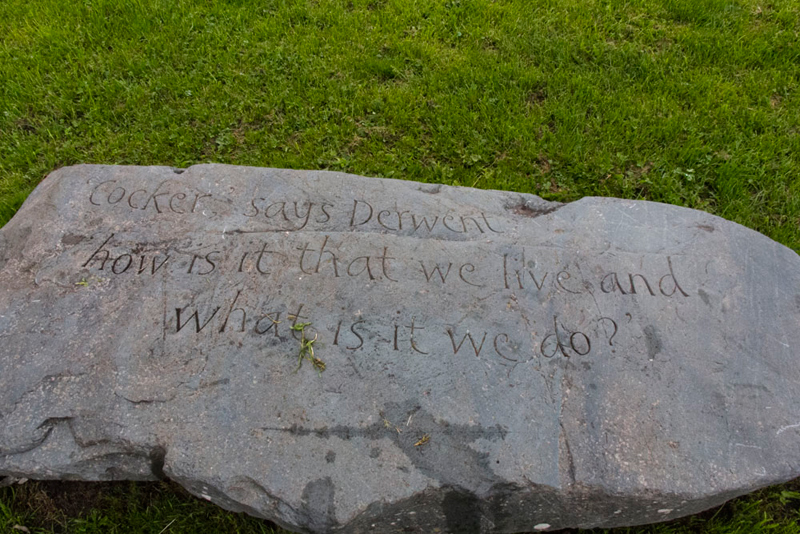 'Cocker' says Derwent
'how is it that we live and
what is it we do?'